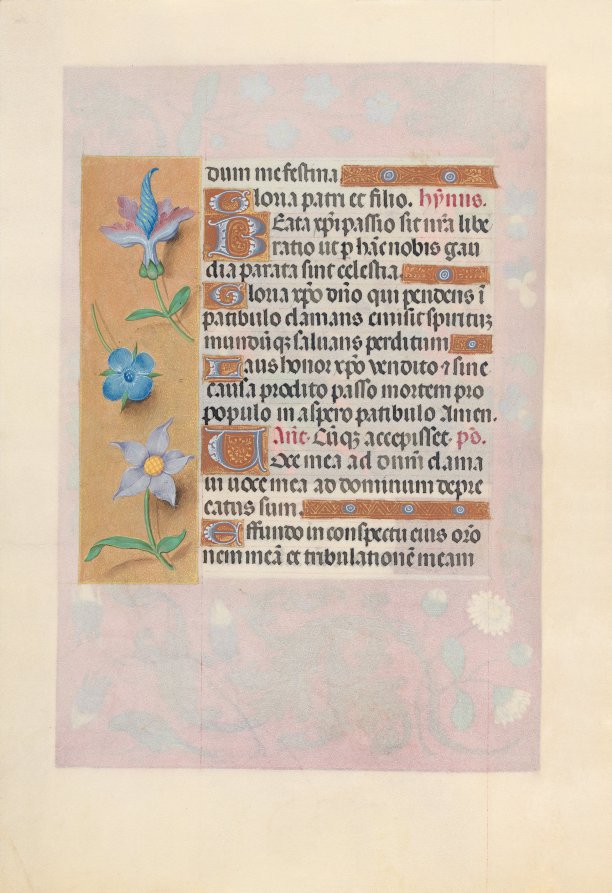 dum me festina
Gloria patri et filio. hỹnus.
Beata xp̃i passio sit nr̃a libe
ratio ut p hãc nobis gau
dia parata sint celestia.
Gloria xp̃o dño qui pendens ĩ
patibulo clamans emisit spirituꝫ
mundũ qꝫ saluans perditum
Laus honor xp̃o vendito ⁊ sine
causa prodito passo mortem pro
populo in aspero patibulo Amen.
Añe. Cũqꝫ accepisset. põ.
Uoce mea ad dñum clama
ui uoce mea ad dominum depre
catus sum.
Effundo in conspectu eius orõ
nem meã et tribulationẽ meam